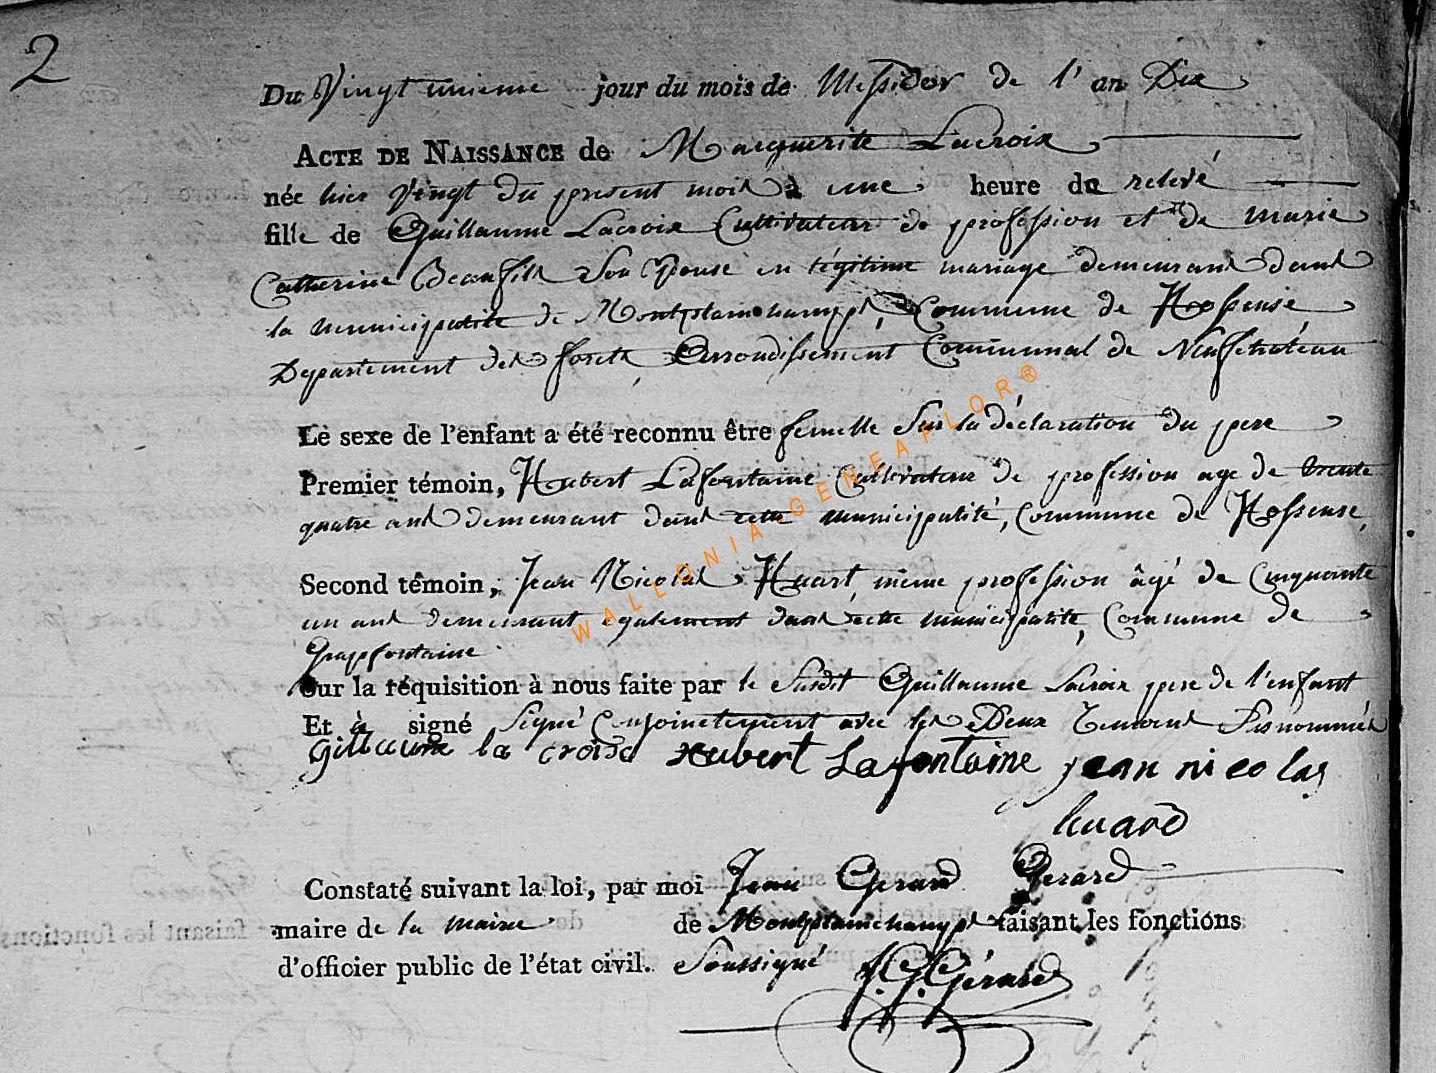 2
Du Vingt unieme jour du mois de Messidor de l'an Dix
ACTE DE NAISSANCE de Marguerite Lacroix
née hier Vingt du present mois à une heure du relevé
fille de Guillaume Lacroix Cultivateur de profession et de marie
Catherine Beaufils Son Epouse en légitime mariage demeurant dans
la municipalité de Montplainchampt, Commune de Hossense
Departement des forets, Arrondissement Communal de Neufchateau
Le sexe de l'enfant a été reconnu être femelle Sur la déclaration du pere
Premier témoin, Hubert Lafontaine Cultivateur de profession age de trente
quatre ans demeurant dans cette municipalité, Commune de Hossense,
Second témoin, Jean Nicolas Huart, même profession âgé de Cinquante
un ans demeurant egalement dans cette municipalité, Commune de
Grapfontaine
Sur la réquisition à nous faite par le Susdit Guillaume Lacroix pere de l'enfant
Et à signé Signé Conjoinctement avec les Deux Temoins
gillaume la croix Hubert Lafontaine jean nicolas
huard
Constaté suivant la loi, par moi Jean Gerard Gerard
maire de la mairie de Montplainchampt faisant les fonctions
d'officier public de l'état civil. Soussigné J. G. Gérard
WALLONIA-GENEAFLOR®